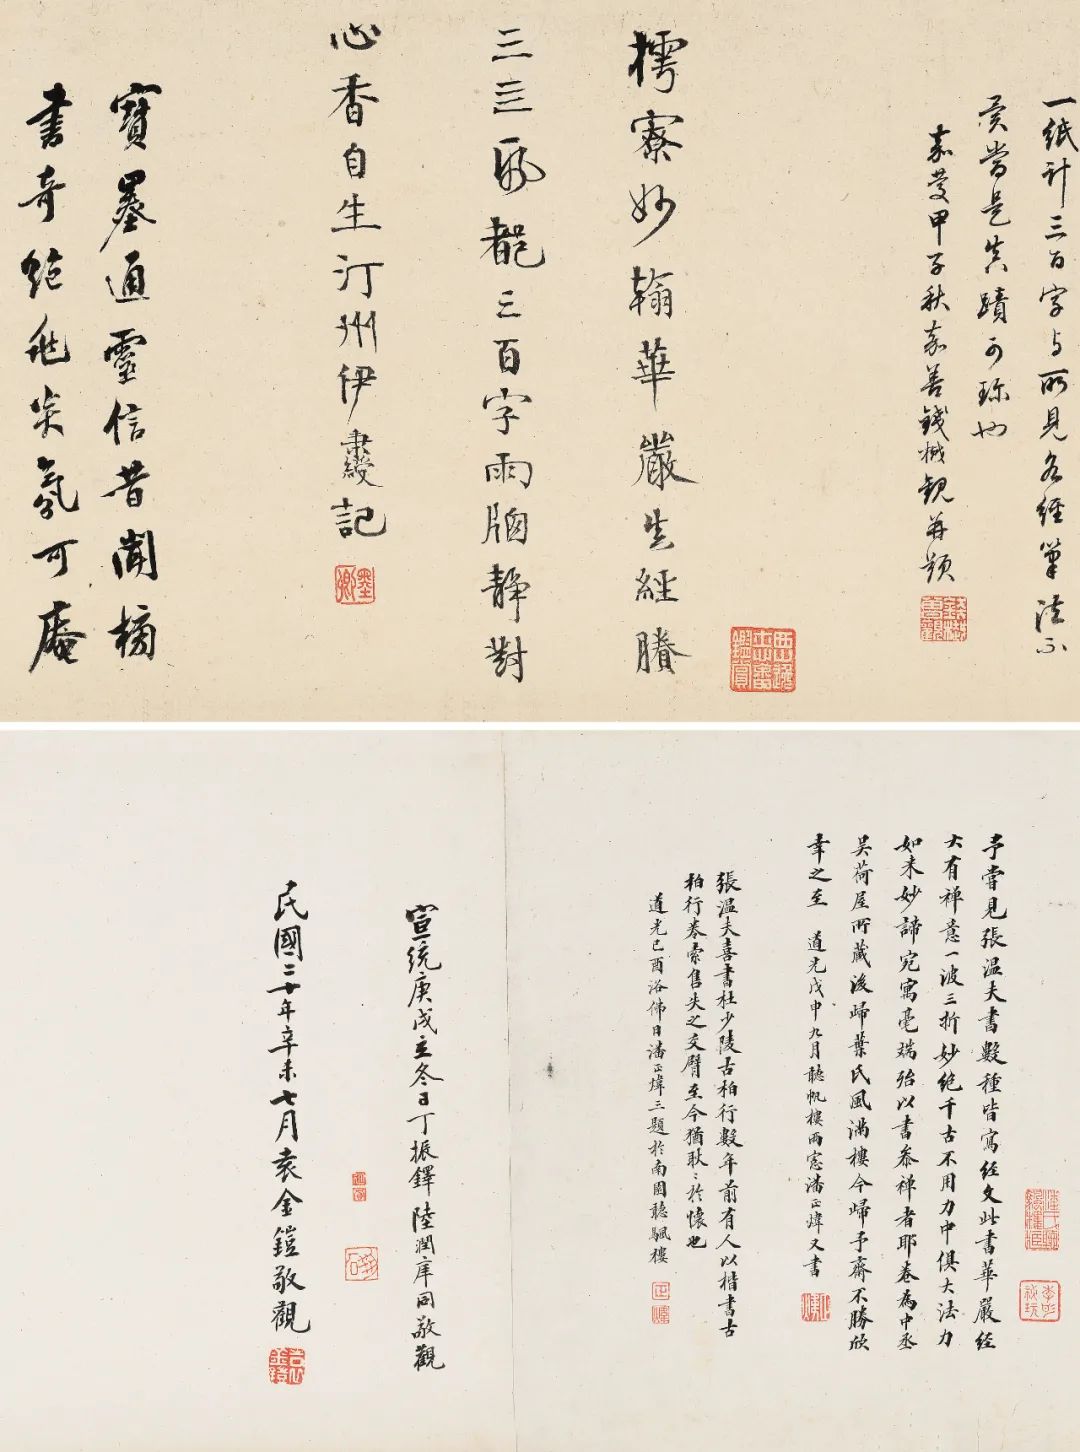 一紙計三百字与所見各經筆法不
異當是真蹟可珎也
嘉慶甲子秋嘉善錢樾觀并題
樗寮妙翰華嚴先經賸
三三一張都三百字雨牕静對
心香自生汀州伊秉綬記
寶墨通靈信昔聞樗
書奇絶飛炎氣可庵
予嘗見張温夫書數種皆寫經文此書華嚴經
大有禅意一波三折妙絶千古不用力中俱大法力
如来妙諦宛寓毫端殆以書叅禅者耶卷為中丞
吴荷屋所藏後歸葉氏風满樓今歸予齋不勝欣
幸之至 道光戊申九月聽帆樓雨窓潘正煒又書
張温夫喜書杜少陵古柏行數年前有人以楷書古
柏行卷索售失之交臂至今猶耿〻於懷也
道光己酉浴佛日潘正煒三題於南園聽颿樓
宣統庚戌立冬日丁振鐸陸潤庠同敬觀
民國二十年辛未七月袁金鎧敬觀